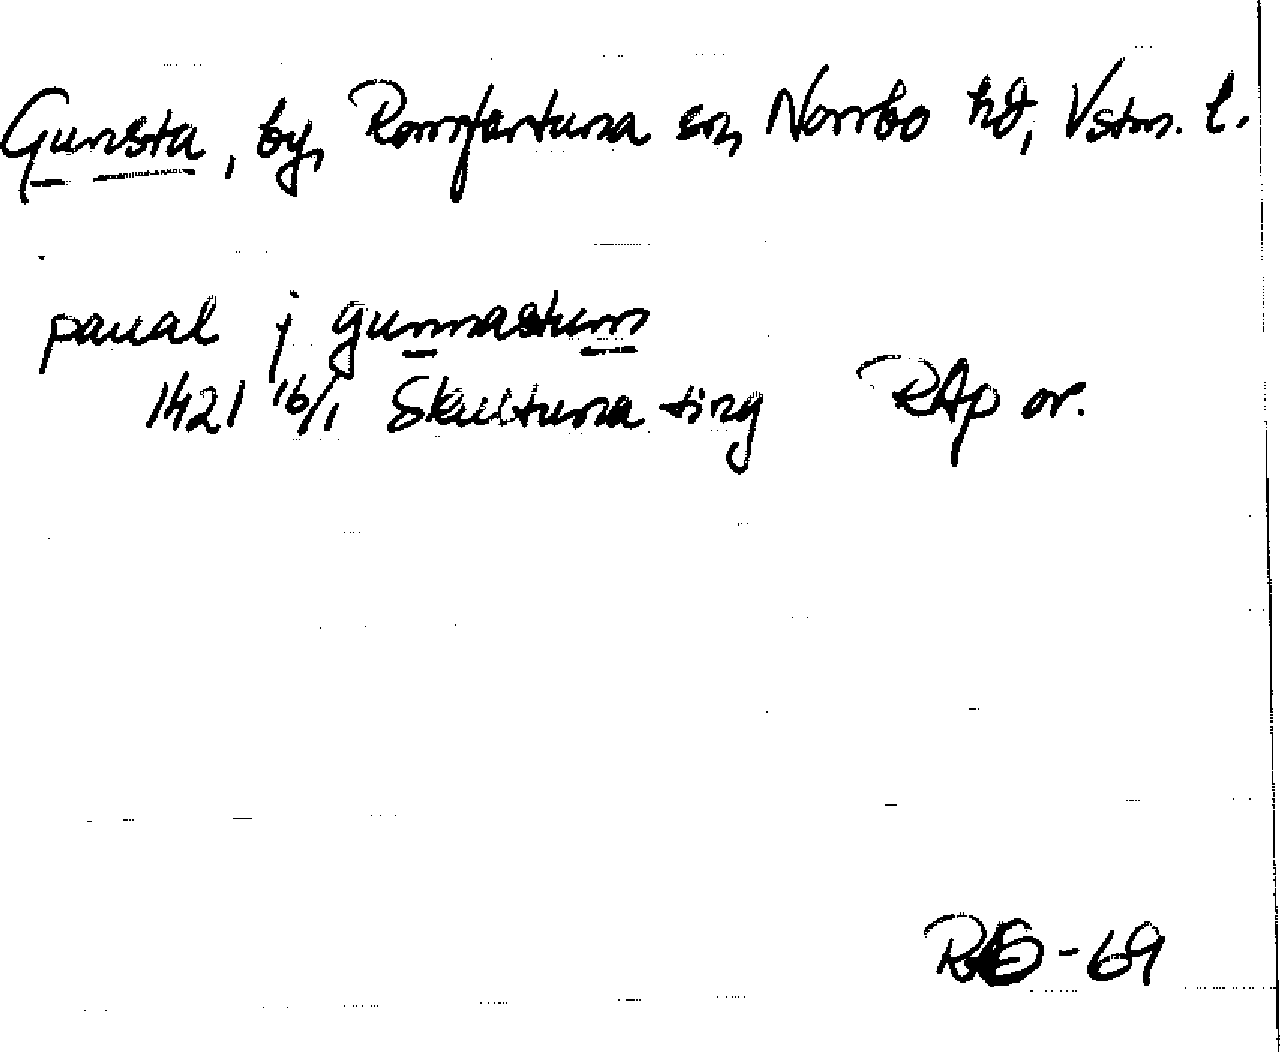 Gunsta, by, Romfartuna sn, Norrbo hd, Vstm. l.
paual j gunnastum
1421 16/1 Skultuna ting RAp or.
-69